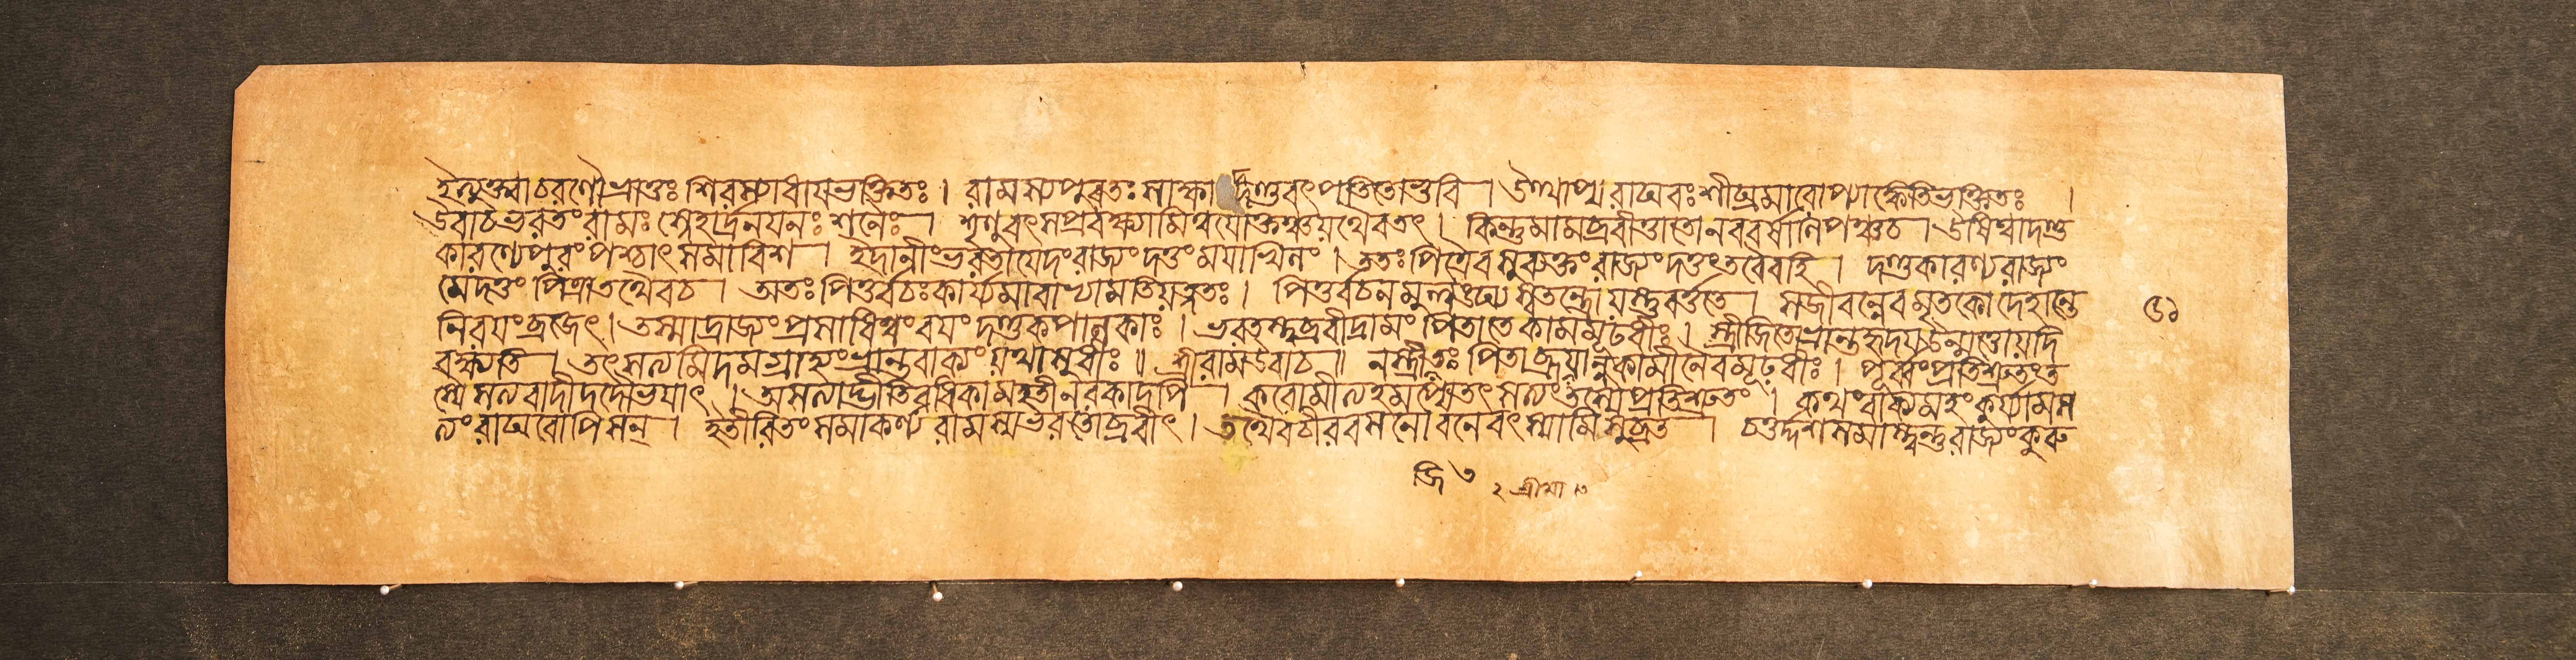 ইত্যুক্ত্বাচরণৌভ্রাতুঃ শিরস্যাধায়ভক্তিতঃ । রামস্যপুরতঃ সাক্ষাদ্দণ্ডবৎপতিতোভুবি । উত্থাপ্য রাঘবঃ শীঘ্রমারোপ্যাঙ্কেতিভক্তিতঃ ।
উবাচভরতং রামঃ স্নেহার্দ্রনয়নঃ শনৈঃ । শৃণুবৎসপ্রবক্ষ্যামিত্বযোক্তঞ্চযথৈবতৎ । কিন্তুমামব্রবীত্তাতোনববর্ষাণিপঞ্চচ । উষিত্বাদণ্ড
কারণ্যেপুরং পশ্চাৎসমাবিশ । ইদানীংভরতায়েদংরাজ্যং দত্তং ময়াখিলং । ততঃ পিত্রৈবসুব্যক্তংরাজ্যং দত্তংতবৈবহি । দণ্ডকারণ্যরাজ্যং
মেদত্তং পিত্রাতথৈবচ । অতঃ পিতুর্বচঃকার্য্যমাবাভ্যামতিযত্নতঃ । পিতুর্বচনমুল্লংঘ্য স্বতন্ত্রোযস্তুবর্ত্ততে । সজীবন্নেবমৃতকোদেহান্তে ৫১
নিরয়ং ব্রজেৎ । তস্মাদ্রাজ্যং প্রশাধিত্বংবয়ং দণ্ডকপালকাঃ । ভরতস্ত্বব্রবীদ্রামং পিতাতেকামমূঢধীঃ । স্ত্রীজিতোভ্রান্তহৃদয়উন্মত্তোযদি
বক্ষ্যতি । তৎসত্যমিদমগ্রাহ্যংভ্রান্তবাক্যংযথাসুধীঃ ॥ শ্রীরামউবাচ ॥ নস্ত্রীজিতঃ পিতাব্রূয়ান্নকামীনৈবমূঢধীঃ । পূর্ব্বংপ্রতিশ্রুতংত
স্যৈসত্যবাদীদদৌভয়াৎ । অসত্যাদ্ভীতিরধিকামহতীনরকাদপি । করোমীত্যহমপ্যেতৎসত্যংতস্যৈপ্রতিশ্রুতং । কথংবাক্যমহংকুর্য্যামস
ত্যংরাঘবোপিসন্ । ইতীরিতং সমাকর্ণ্য রামস্যভরতোব্রবীৎ । তথৈবচীরবসনোবনেবৎস্যামিসুব্রত । চতুর্দ্দশসমাস্ত্বন্তুরাজ্যংকুরু